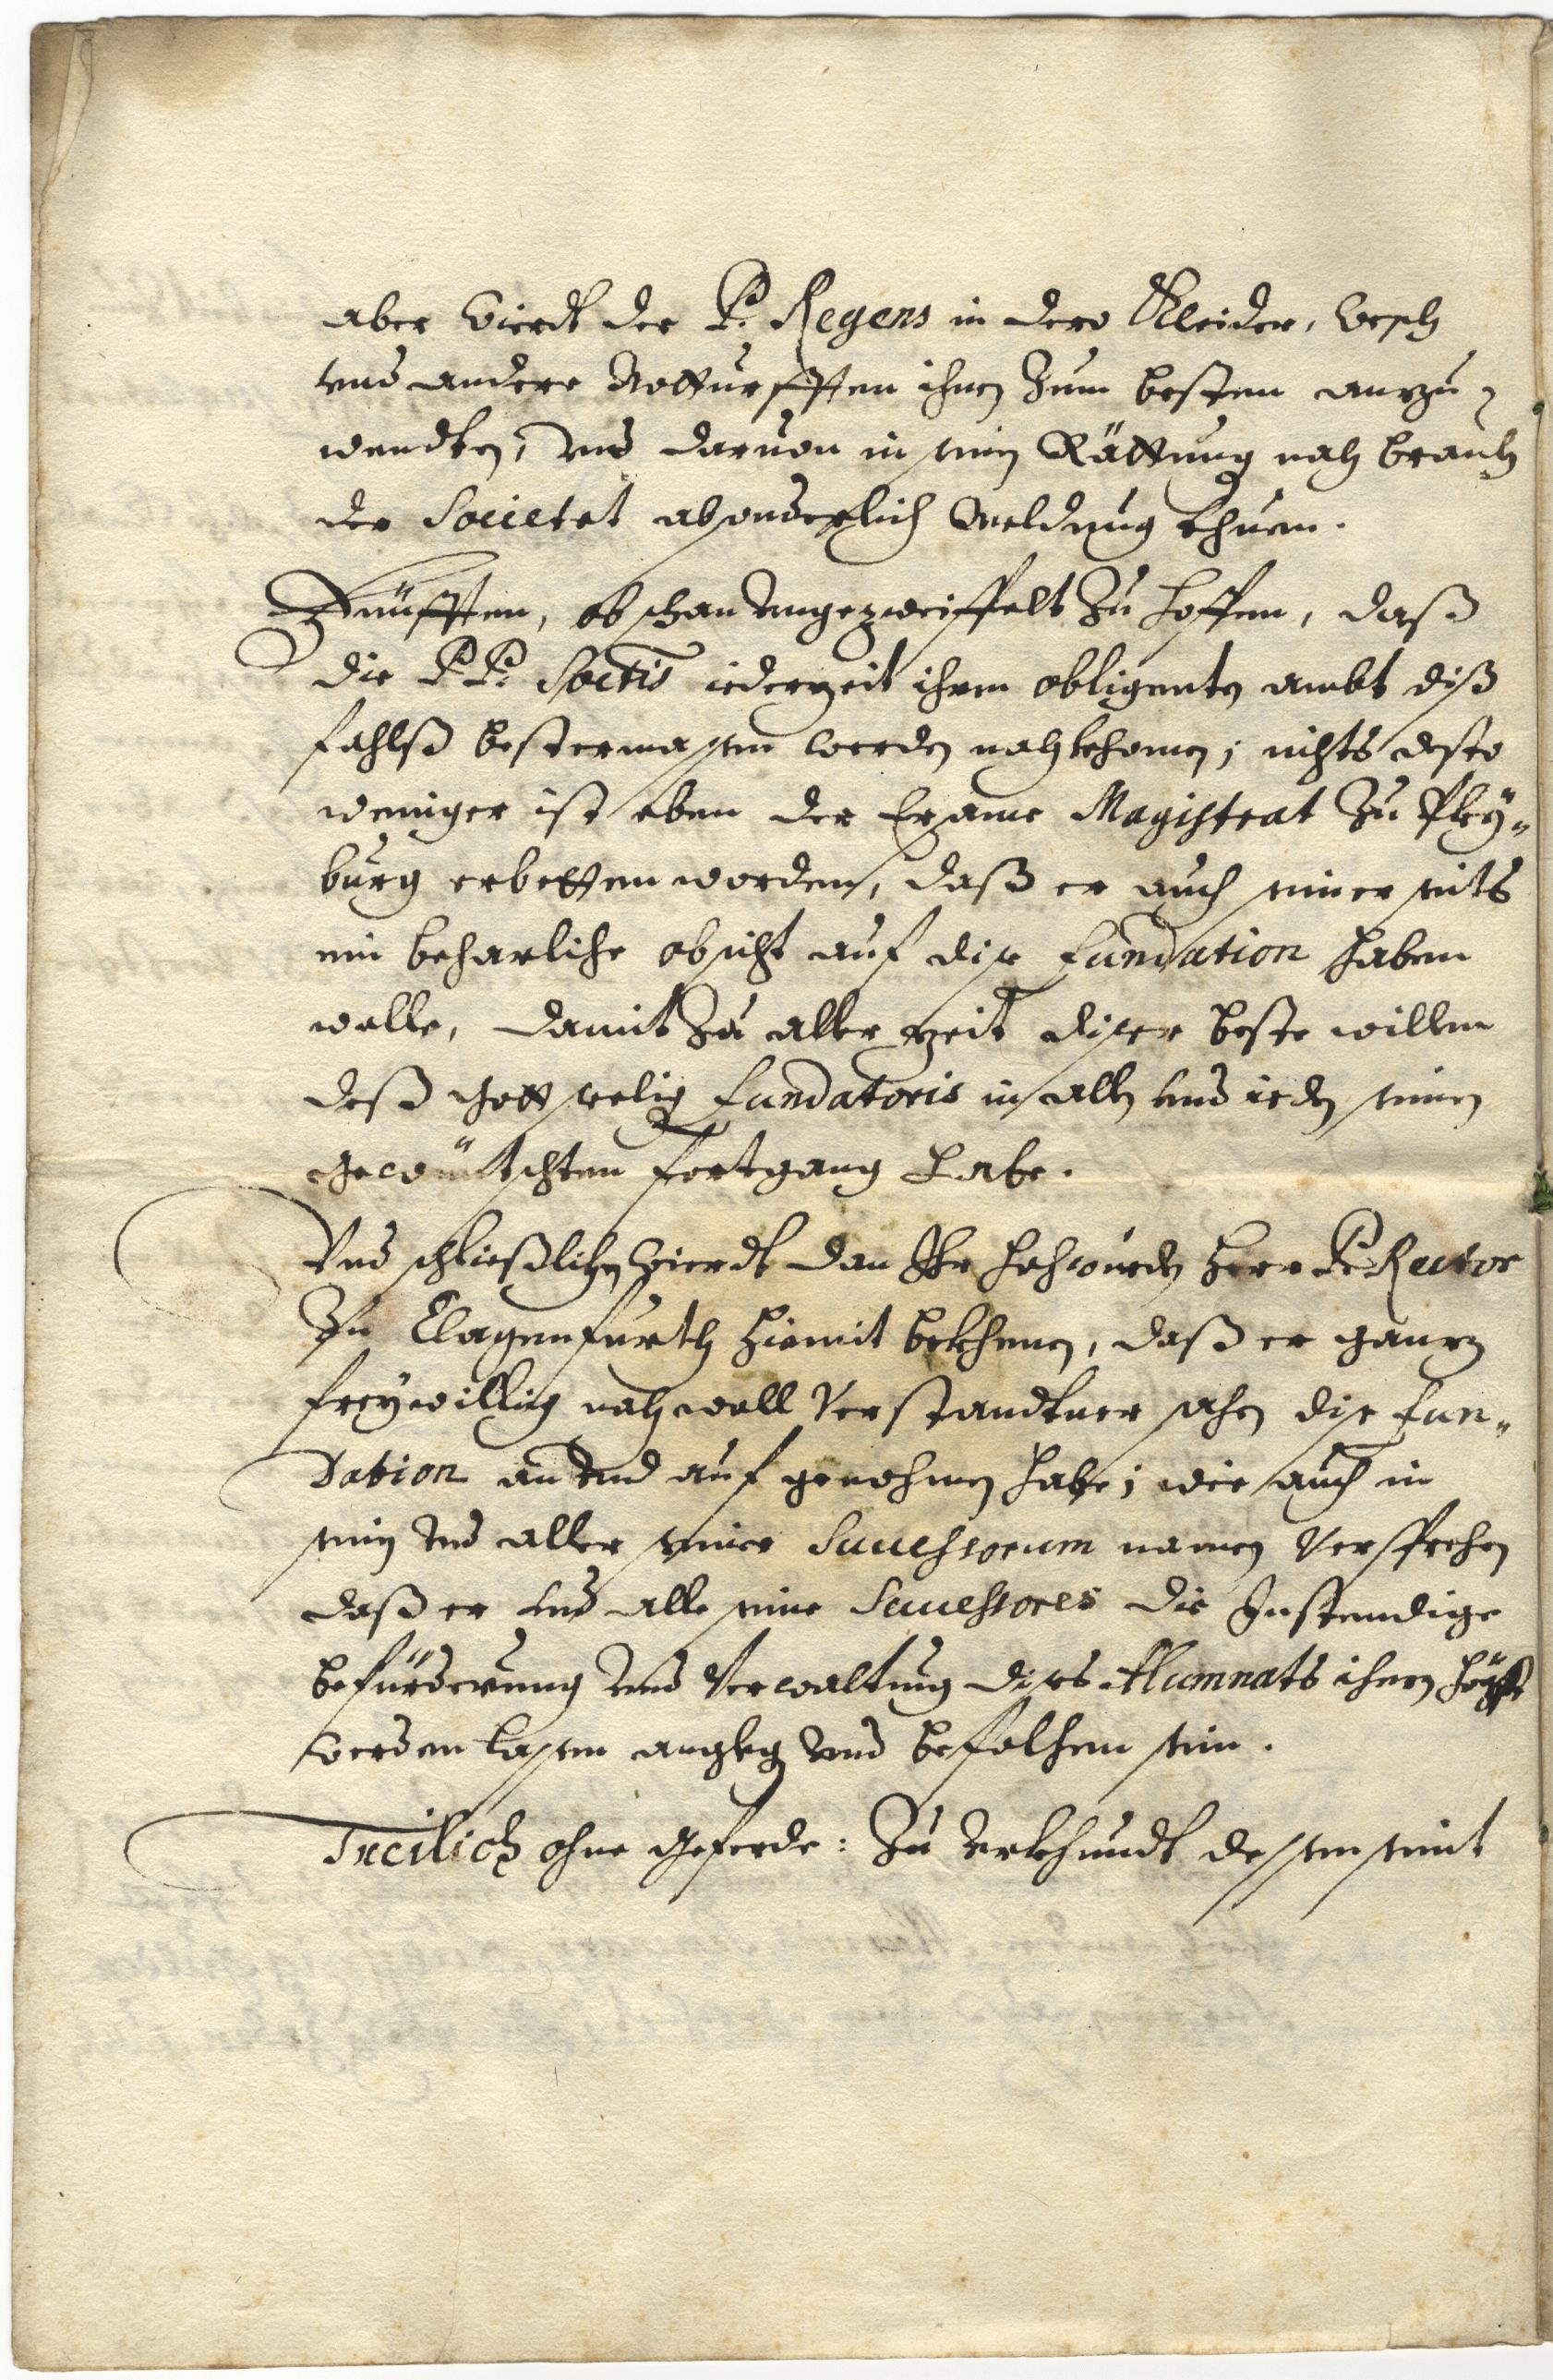 aber wierdt der P. Regens in dero Kleider, wesch
vnd andere Notturfften ihnen zum besten anzu-
wendten, vnd daruon in sein Rättung nach brauch
der Societet absonderlich Meldung thuen.
Fünfften, ob schon vngezweiffelt zu hoffen, daß
die PP. Soctis iederzeit ihrem obligenten ambt diß
fahlß bestermassen werden nachkhomen; nichts desto
weniger ist eben der Ersame Magistrat zu Pley„
burg erbetten worden, daß er auch seiner seits
ein beharliche obsicht auf dise fundation haben
wolle, damit zu aller zeit diser beste willen
deß gott seelig fundatoris in alln vnd ieden seinen
gewüntschten fortgang habe.
Vnd schließlichen wierdt dan Ihr Hochwürdn Herr P. Rector
zu Clagenfurth hiemit bekhenen, daß er gantz
freywillig nach woll verstandtner sachen dise fun„
dation an vnd auf genohmen habe; wie auch in
sein vnd aller seiner Successorum namen versprechen
daß er vnd alle seine Successores die Instendige
befürderung vnd Verwaltung dises Alumnats ihnen höchst
werden lassen anglegn vnd befolhen sein.
Treilich ohne geferde: Zu Vrkhundt dessen seint